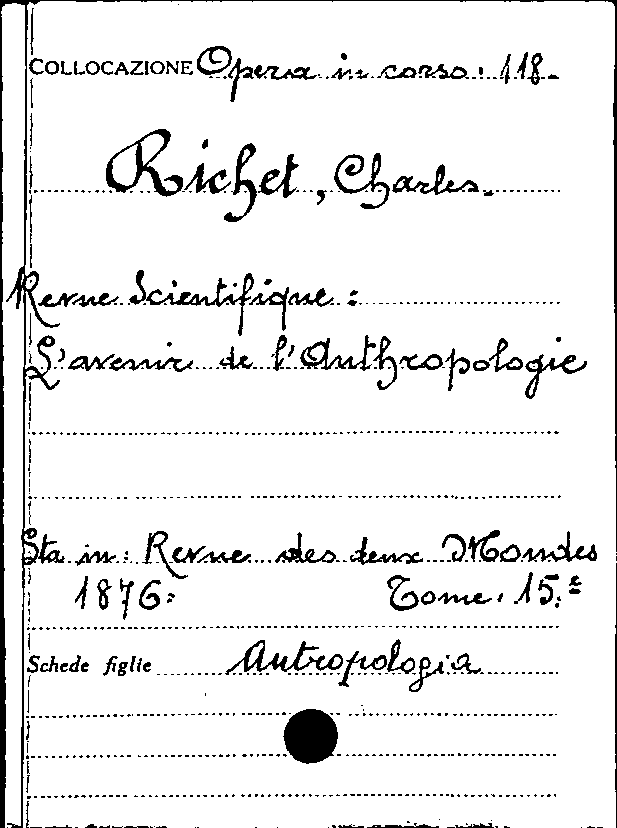 COLLOCAZIONE Opera in corso. 118.
Richet, Charles.
Revue Scientifique:
L'avenir de l'Anthropologie
Sta in: Revue des deux Mondes
1876: Tome. 15.e
Schede figlie Antropologia